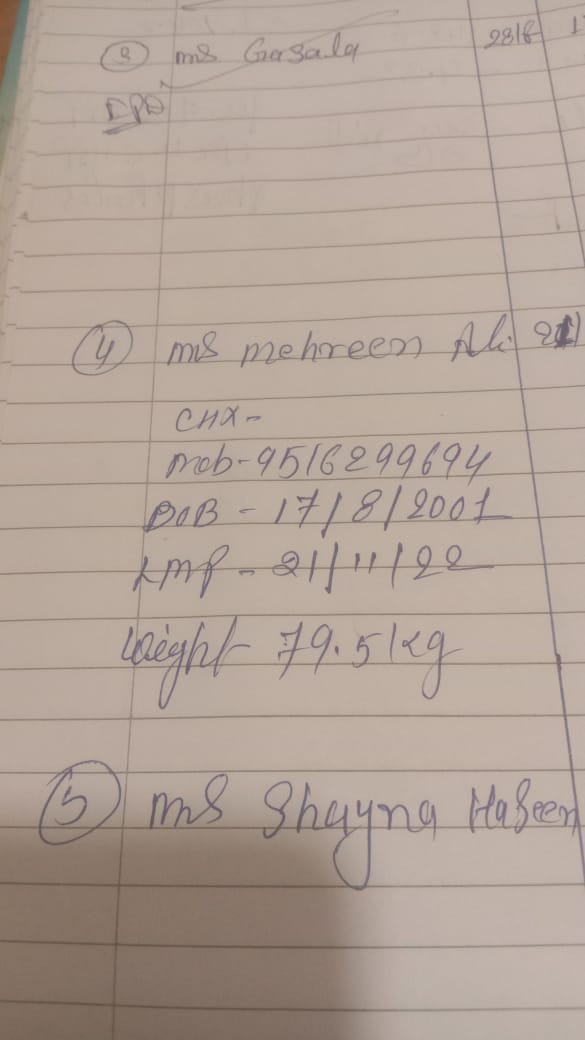 3 ms Gasala 28/F
IPD
4 ms mehreen Ali 21
CHX-
mob-9516299694
DOB - 17/8/2001
LMP - 21/11/22
Weight- 79.5 kg
5 ms Shayna Haseen